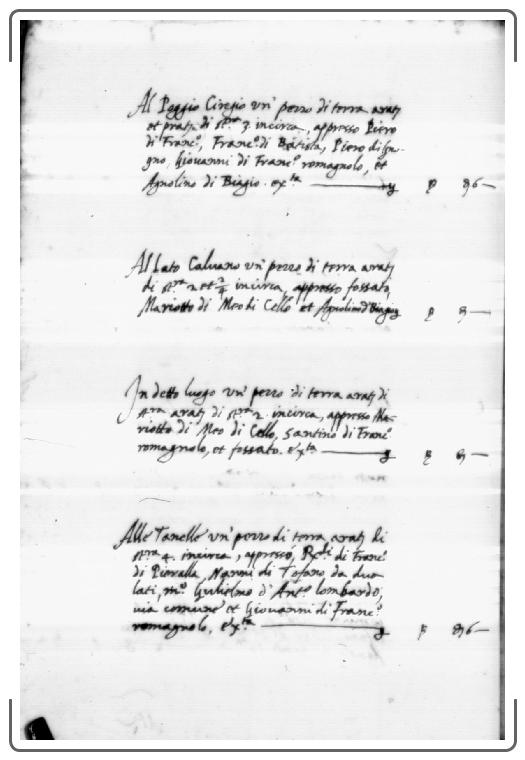 Al Poggio Ciregio un' pezzo di terra arati
et prati di st.ra 3. incirca, appresso Piero
di Franc.o, Franc.o di Batista, Piero di
gno, Giovanni di Franc.o romagnolo, et
Agnolino di Biagio. &x.ta
Al Lato Calvano un' pezzo di terra arati
di st.ra 2 et incirca, appresso fossato,
Mariotto di Meo di Cello et Agnolino d Biagio
In detto luogo un' pezzo di terra arati di
st.ra arati di st.ra 2. incirca, appresso Ma-
riotto di Meo di Cello, Santino di Franc.o
romagnolo, et fossato. &x.ta
Alle Tanelle un' pezzo di terra arati di
st.ra 4. incirca, appresso, di Franc.o
di Pieralla, Nanni di Tofano da dua
lati, m.o Gulielmo d' Ant.o lombardo,
via comune et Giovanni di Franc.o
romagnolo, &x.ta